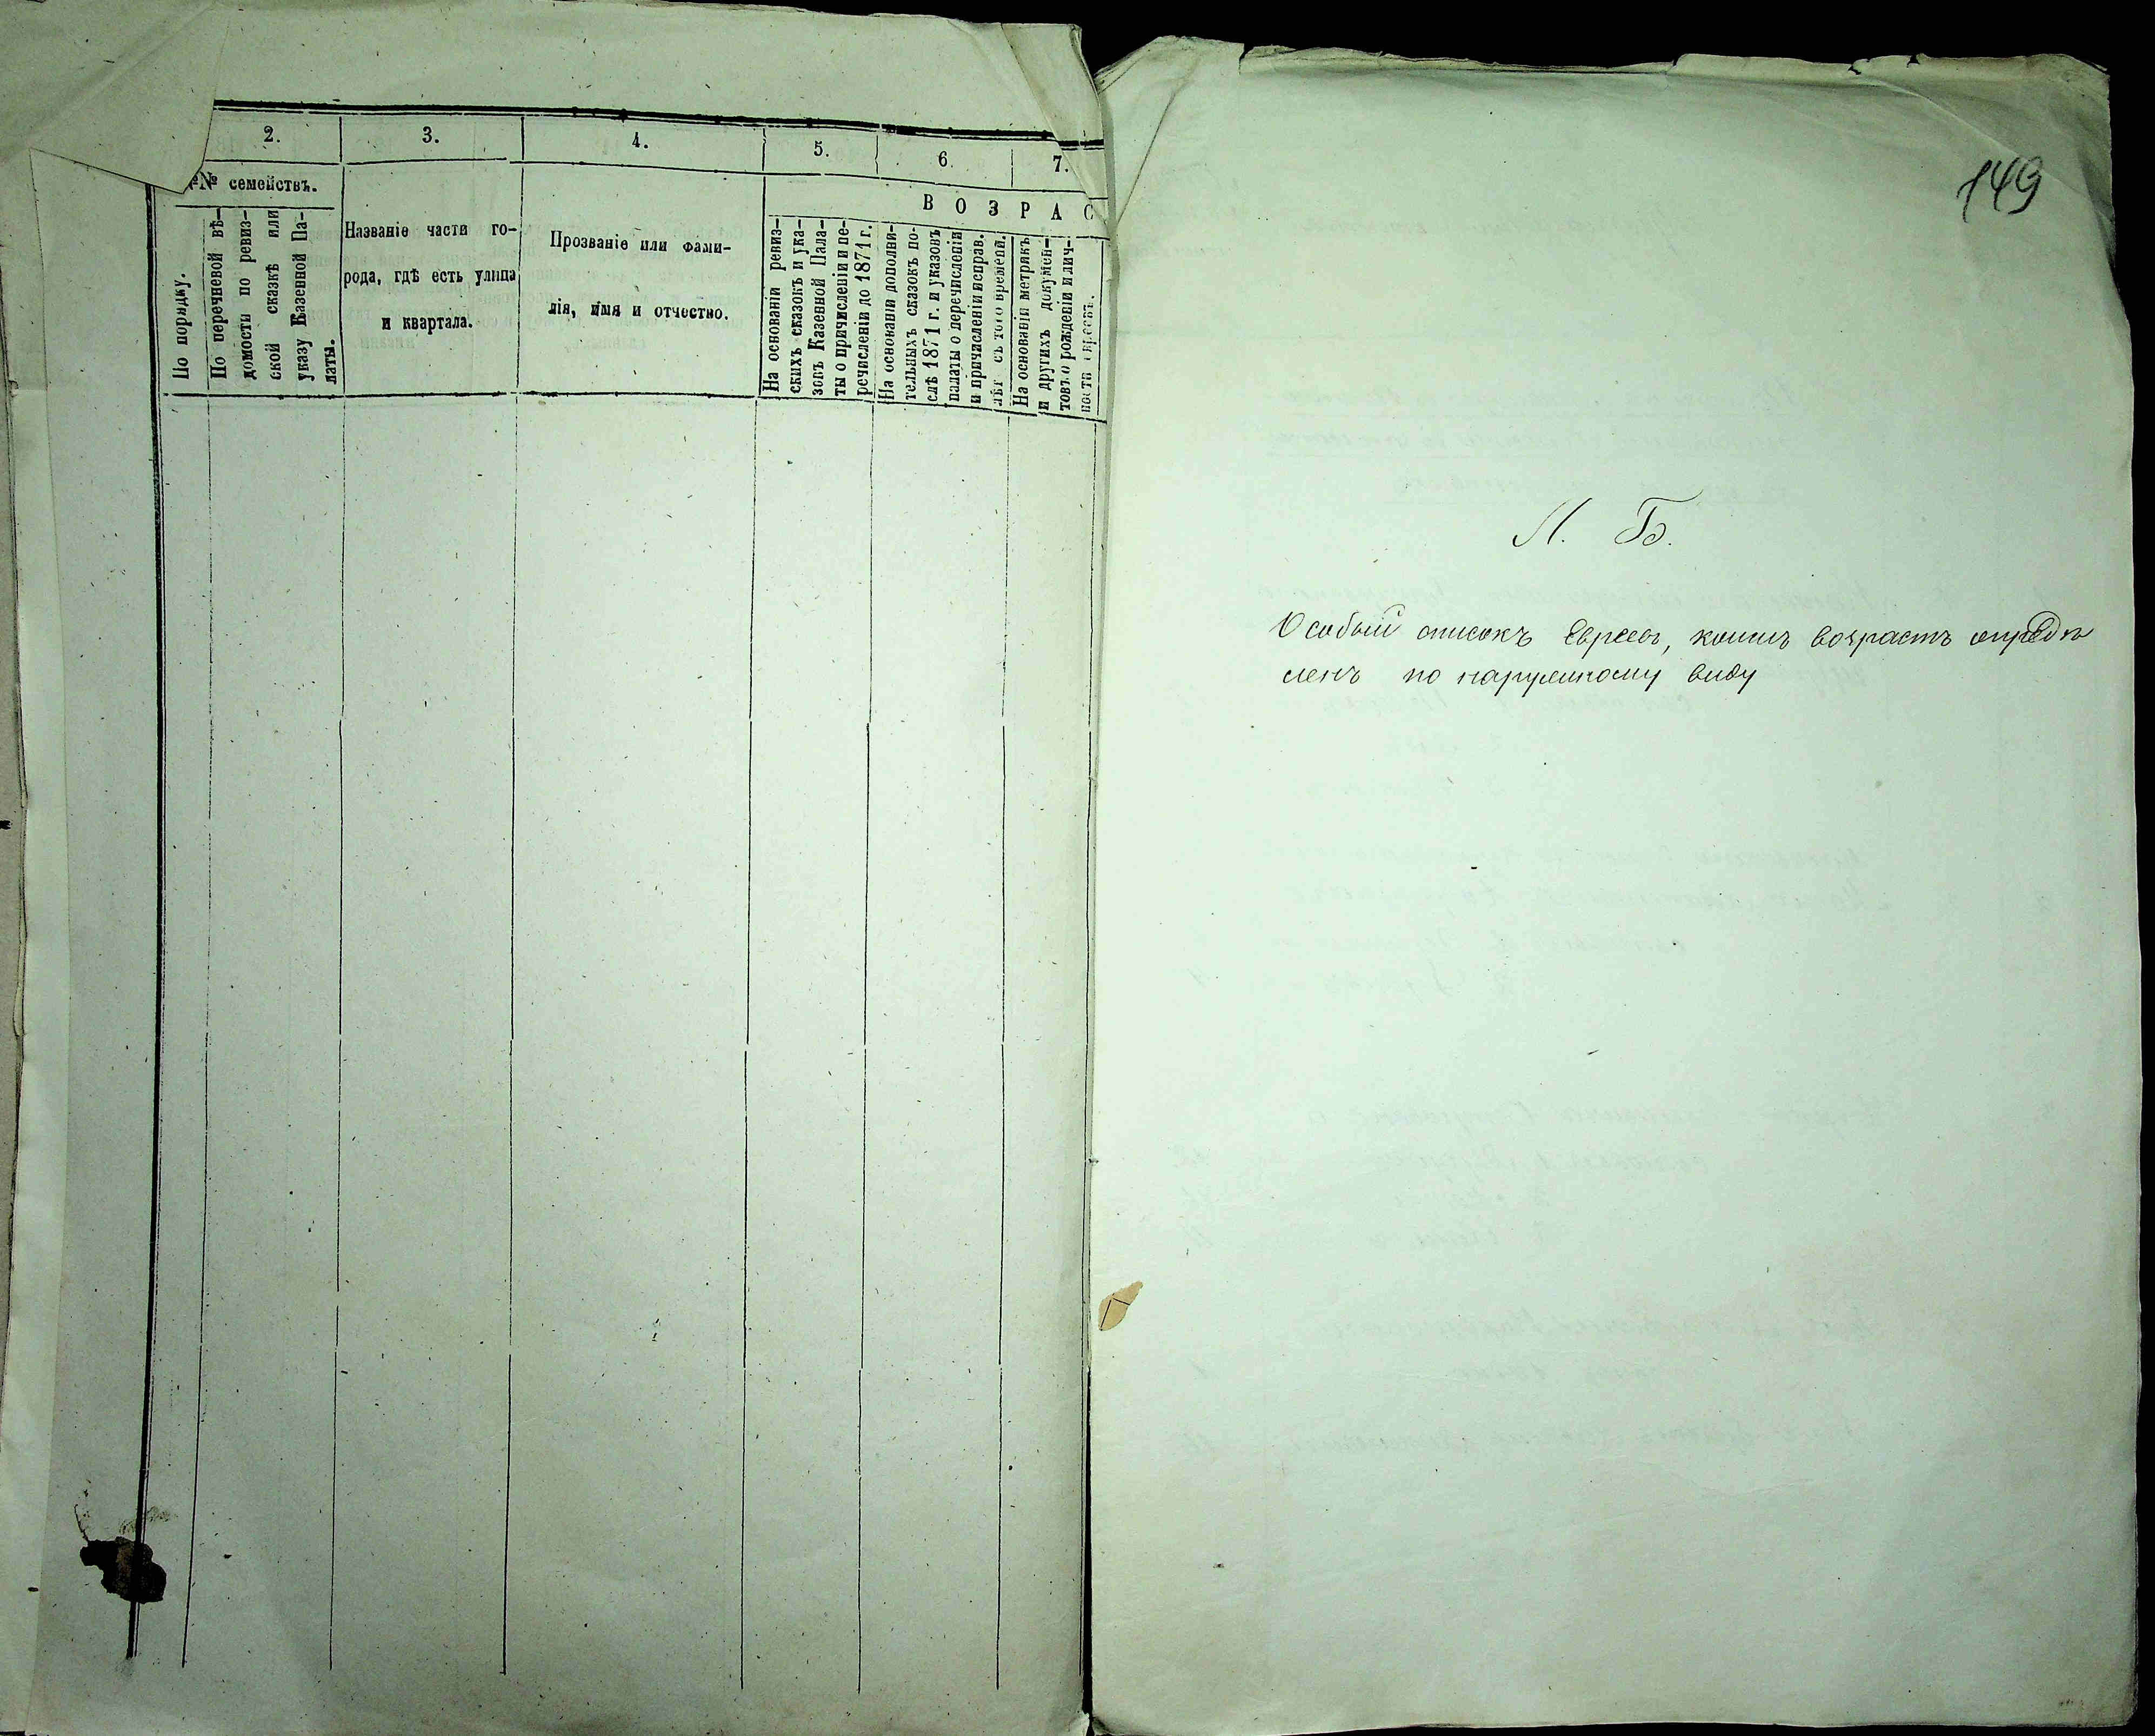 2.
3.
4.
5.
6.
7.
№ семействъ.
В О З Р А С
По порядку.
По перечневой вѣ-
домости по ревиз-
ской сказкѣ или
указу Казенной Па-
латы.
Названіе части го-
рода, гдѣ есть улица
и квартала.
Прозваніе или фами-
лія, имя и отчество.
На основаніи ревиз-
скихъ сказокъ и ука-
зовъ Казенной Пала-
ты о причисленіи и пе-
речисленіи до 1871 г.
На основаніи дополни-
тельныхъ сказокъ по-
слѣ 1871 г. и указовъ
палаты о перечисленіи
и причисленіи исправ.
лѣт съ того времени.
На основаніи метрикъ
и другихъ докумен-
товъ о рожденіи и лич-
ности евреевъ.
149
Л. Б.
Особый списокъ Евреевъ, коимъ возрастъ опредѣ
ленъ по наружному виду